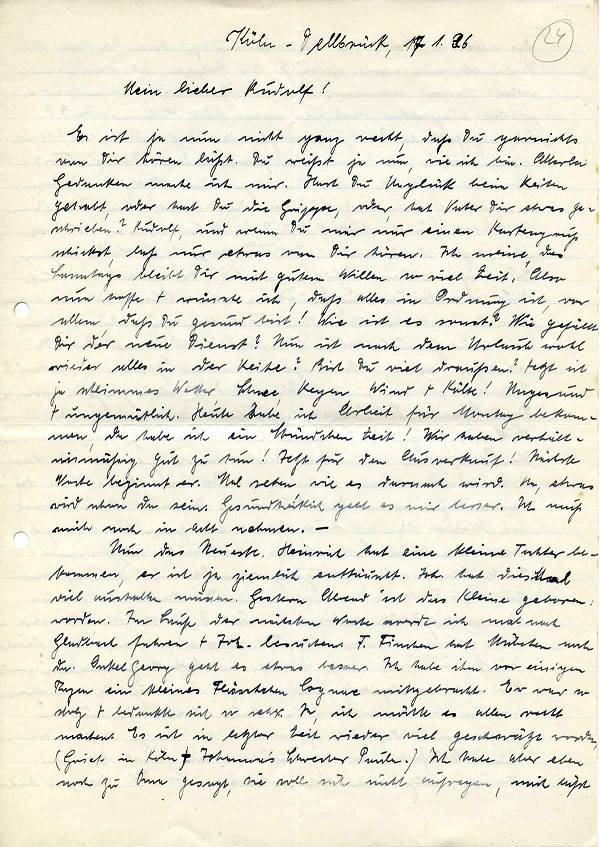 24
Köln-Dellbrück, 17. 1. 36
Mein lieber Rudolf!
Es ist ja nun nicht ganz recht, daß Du garnichts
von Dir hören läßt. Du weißt ja nun, wie ich bin. Allerlei
Gedanken mache ich mir. Hast Du Unglück beim Reiten
gehabt, oder hast Du die Grippe, oder hat Vater Dir etwas ge-
schrieben? Rudolf, und wenn Du mir nur einen Kartengruß
schickst, laß nur etwas von Dir hören. Ich meine, des
Sonntags bleibt Dir mit gutem Willen so viel Zeit. Also
nun hoffe + wünsche ich, daß alles in Ordnung ist, vor
allem, daß Du gesund bist! Wie ist es sonst? Wie gefällt
Dir der neue Dienst? Nun ist nach dem Urlaub wohl
wieder alles in der Reihe? Bist Du viel draußen? Jetzt ist
ja schlimmes Wetter Schnee, Regen Wind + Kälte! Ungesund
+ ungemütlich. Heute habe ich Arbeit für Montag bekom-
men, da habe ich ein Stündchen Zeit! Wir haben verhält-
nismäßig gut zu tun! Jetzt für den Ausverkauf! Nächste
Woche beginnt er. Mal sehen wie es danach wird. Na, etwas
wird schon da sein. Gesundheitlich geht es mir besser. Ich muß
mich noch in acht nehmen. —
Nun das Neueste. Heinrich hat eine kleine Tochter be-
kommen, er ist ja ziemlich enttäuscht. Joh. hat diesmal
viel aushalten müssen. Gestern Abend ist das Kleine geboren
worden. Im Laufe der nächsten Woche werde ich mal nach
Gladbach fahren + Joh. besuchen. T. Finchen hat Mädchen noch
da. Onkel Georg geht es etwas besser. Ich habe ihm vor einigen
Tagen ein kleines Fläschchen Cognac mitgebracht. Er war so
stolz + bedankte sich so sehr. Ja, ich möchte es allen recht
machen! Es ist in letzter Zeit wieder viel geschwätzt worden,
in Köln + Johanna's Schwester Paula.) Ich habe aber eben
noch zu gesagt, sie soll sich nicht aufregen, mich läßt